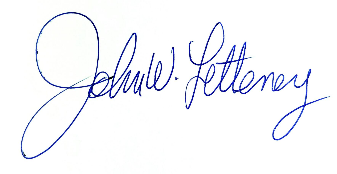 John W. Letteney